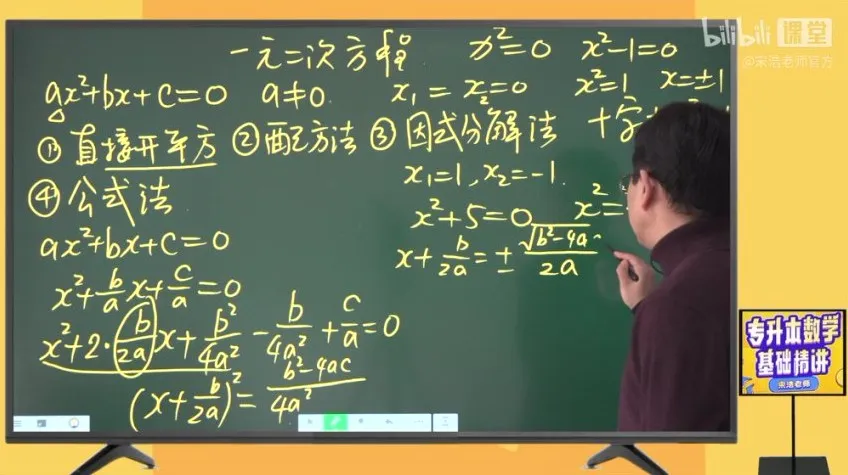 bilibili 课堂
@宋浩老师官方
一元二次方程 x²=0 x²-1=0
ax²+bx+c=0 a≠0 x₁=x₂=0 x²=1 x=±1
①直接开平方 ②配方法 ③因式分解法 十字
x₁=1,x₂=-1.
④公式法
x²+5=0 x²=
ax²+bx+c=0
x+b/2a=±√b²-4a/2a
x²+b/ax+c/a=0
x²+2·b/2a x+b²/4a²-b/4a²+c/a=0
(x+b/2a)²=b²-4ac/4a²
专升本数学
基础精讲
宋浩老师